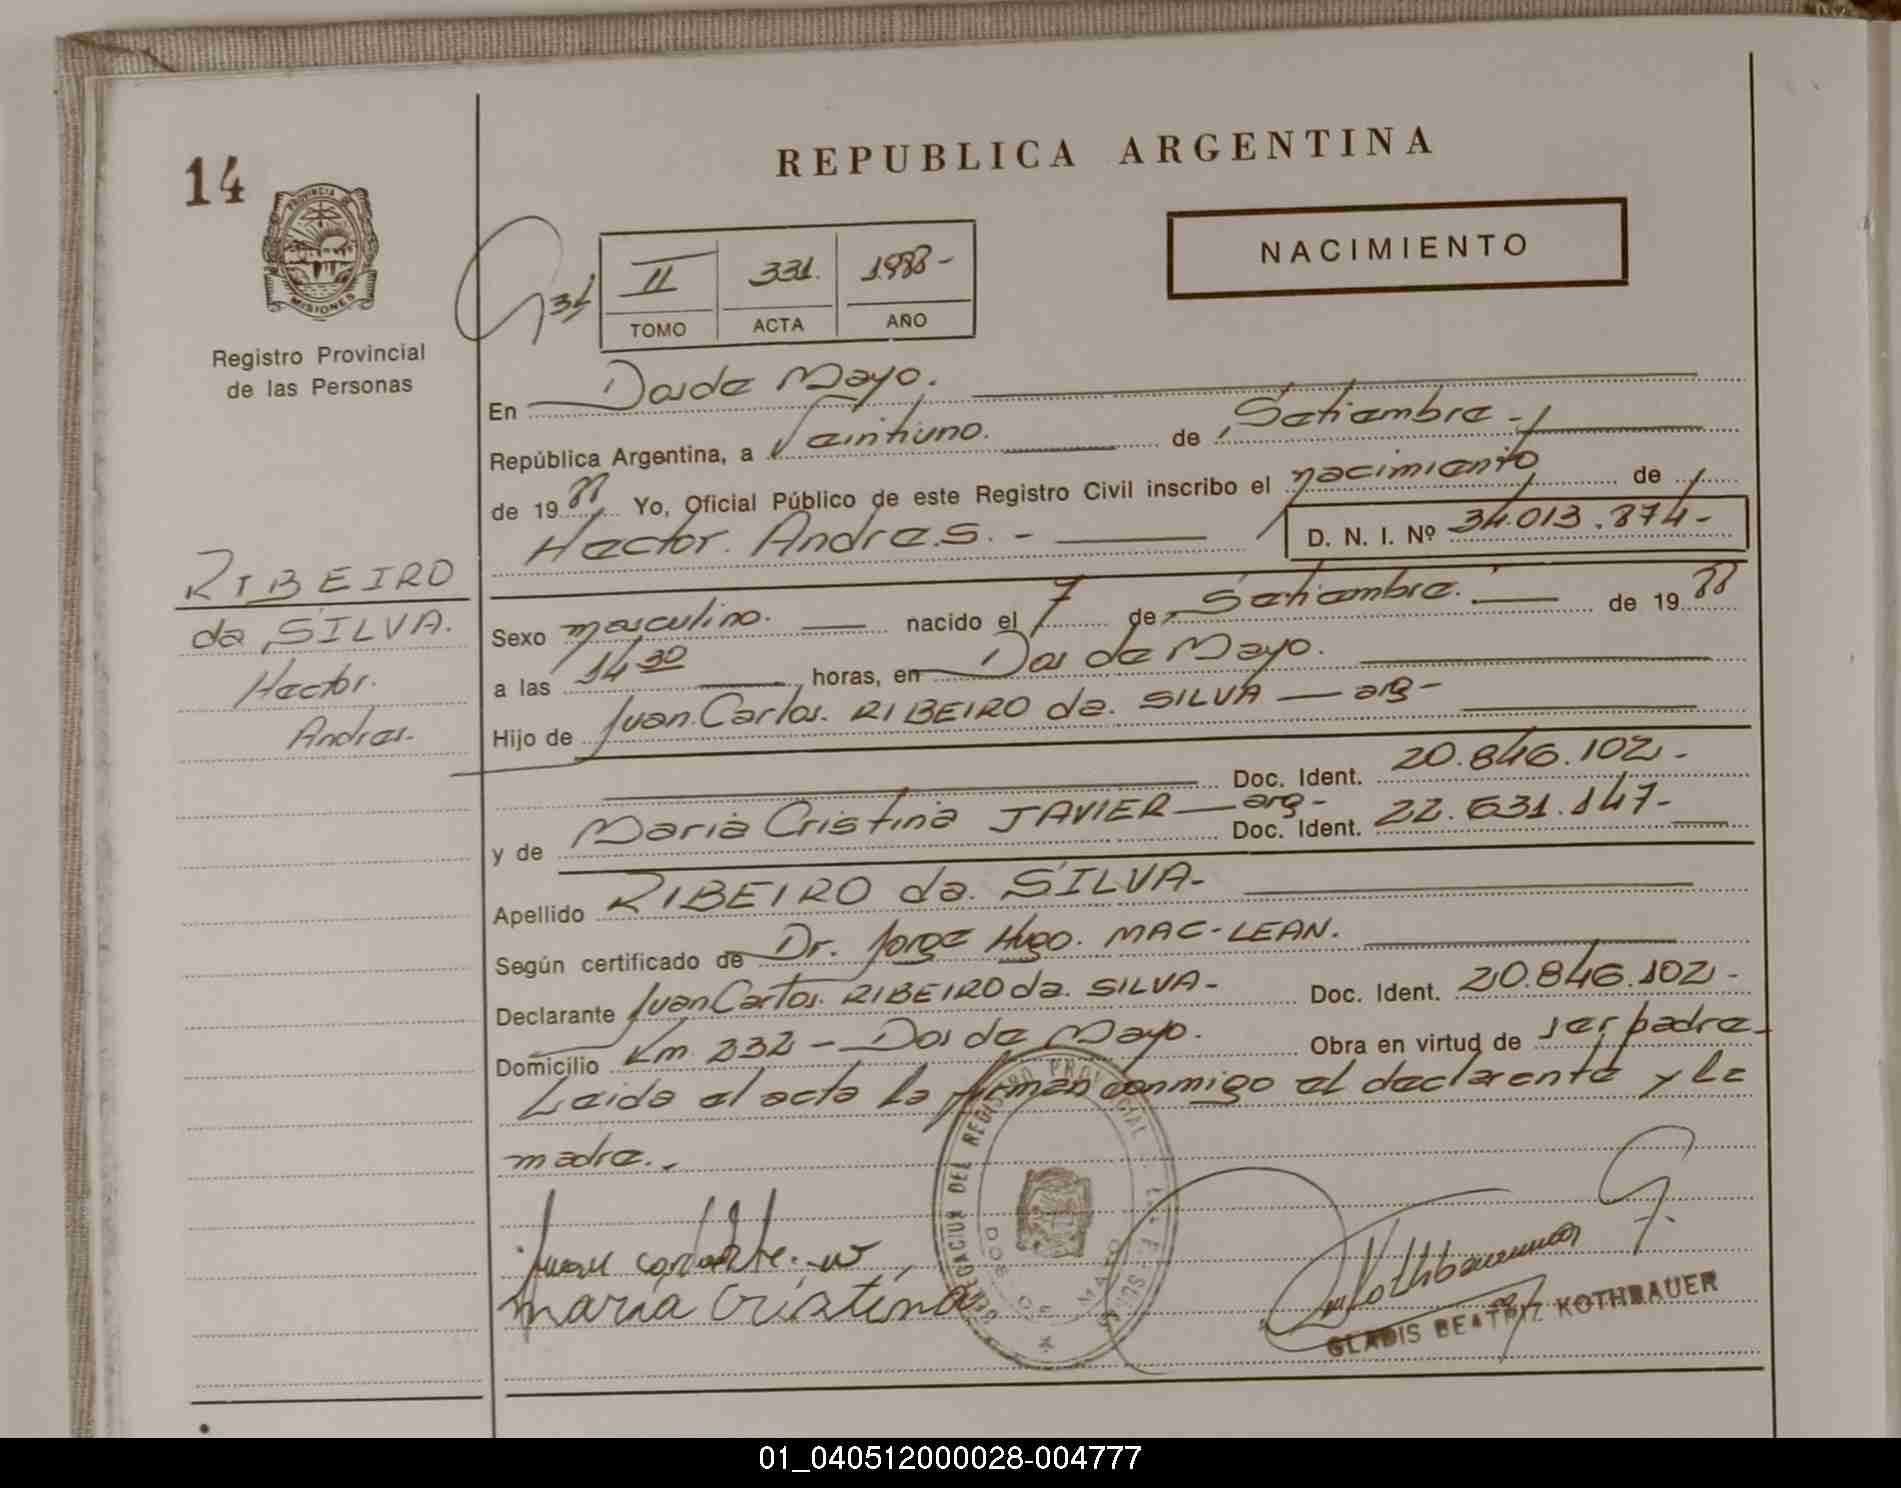 REPUBLICA ARGENTINA
14
PROVINCIA
MISIONES
Registro Provincial
de las Personas
NACIMIENTO
II 331. 1.988-
TOMO ACTA AÑO
En Dos de Mayo.
República Argentina, a Veintiuno. de Setiembre
de 1988 Yo, Oficial Público de este Registro Civil inscribo el nacimiento de
Hector Andres.- D. N. I. Nº 34.013.874-
RIBEIRO
da SILVA.
Hector
Andres-
Sexo masculino. nacido el 7 de Setiembre. de 1988
a las 14 30 horas, en Dos de Mayo.
Hijo de Juan Carlos RIBEIRO da SILVA — arg-
Doc. Ident. 20.846.102-
y de Maria Cristina JAVIER — arg- Doc. Ident. 22.631.147-
Apellido RIBEIRO da SILVA-
Según certificado de Dr. Jorge Hugo MAC-LEAN.
Declarante Juan Carlos RIBEIRO da SILVA- Doc. Ident. 20.846.102-
Domicilio Km 232 - Dos de Mayo. Obra en virtud de ser padre-
Leida el acta la firman conmigo el declarente y la
madre.
DELEGACION DEL REGISTRO PROVINCIAL
DOS DE MAYO
maria Cristina
Kothbauer
GLADIS BEATRIZ KOTHBAUER
01_040512000028-004777